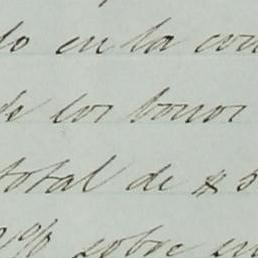 do en la con
de los bonos
total de $ 5
% sobre en